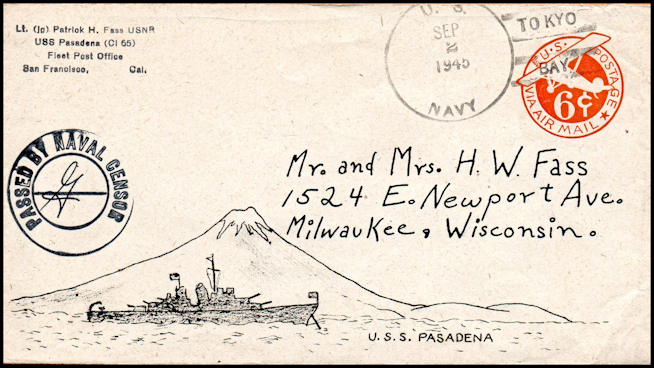 Lt. (jg) Patrick H. Fass USNR
USS Pasadena (Cl 65)
Fleet Post Office
San Francisco, Cal.
U. S.
SEP
2
1945
NAVY
TOKYO
BAY
U·S·POSTAGE
6¢
VIA AIR MAIL
PASSED BY NAVAL CENSOR
Mr. and Mrs. H. W. Fass
1524 E. Newport Ave.
Milwaukee, Wisconsin.
U.S.S. PASADENA